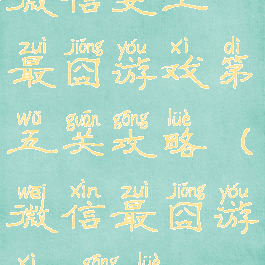 微信史上
zuì jiǒng yóu xì dì
最囧游戏第
wǔ guān gōng lüè
五关攻略（
wēi xìn zuì jiǒng yóu
微信最囧游
xì gōng lüè